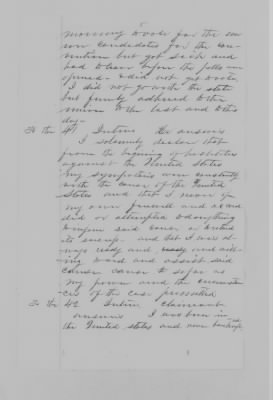 morning to vote for the
candidates for the con-
vention but got sick and
had to leave before the polls were
opened & did not get to vote
I did not go with the state
but firmly adhered to the
union to the last and to this
day—
To the 41 Interr He answers
I solemnly declare that
from the beginning of hostilities
against the United States
my sympathies were constantly
with the cause of the United
States and that I never of
my own freewill and accord
did or attempted to do anything
to injure said cause or hinder
its success and that I was al-
ways ready and
ing to aid and assist said
cause so far as
my power and the circumstan
ces of the case permitted
To the 42 Interr claimant
answers I was born in
the United states and